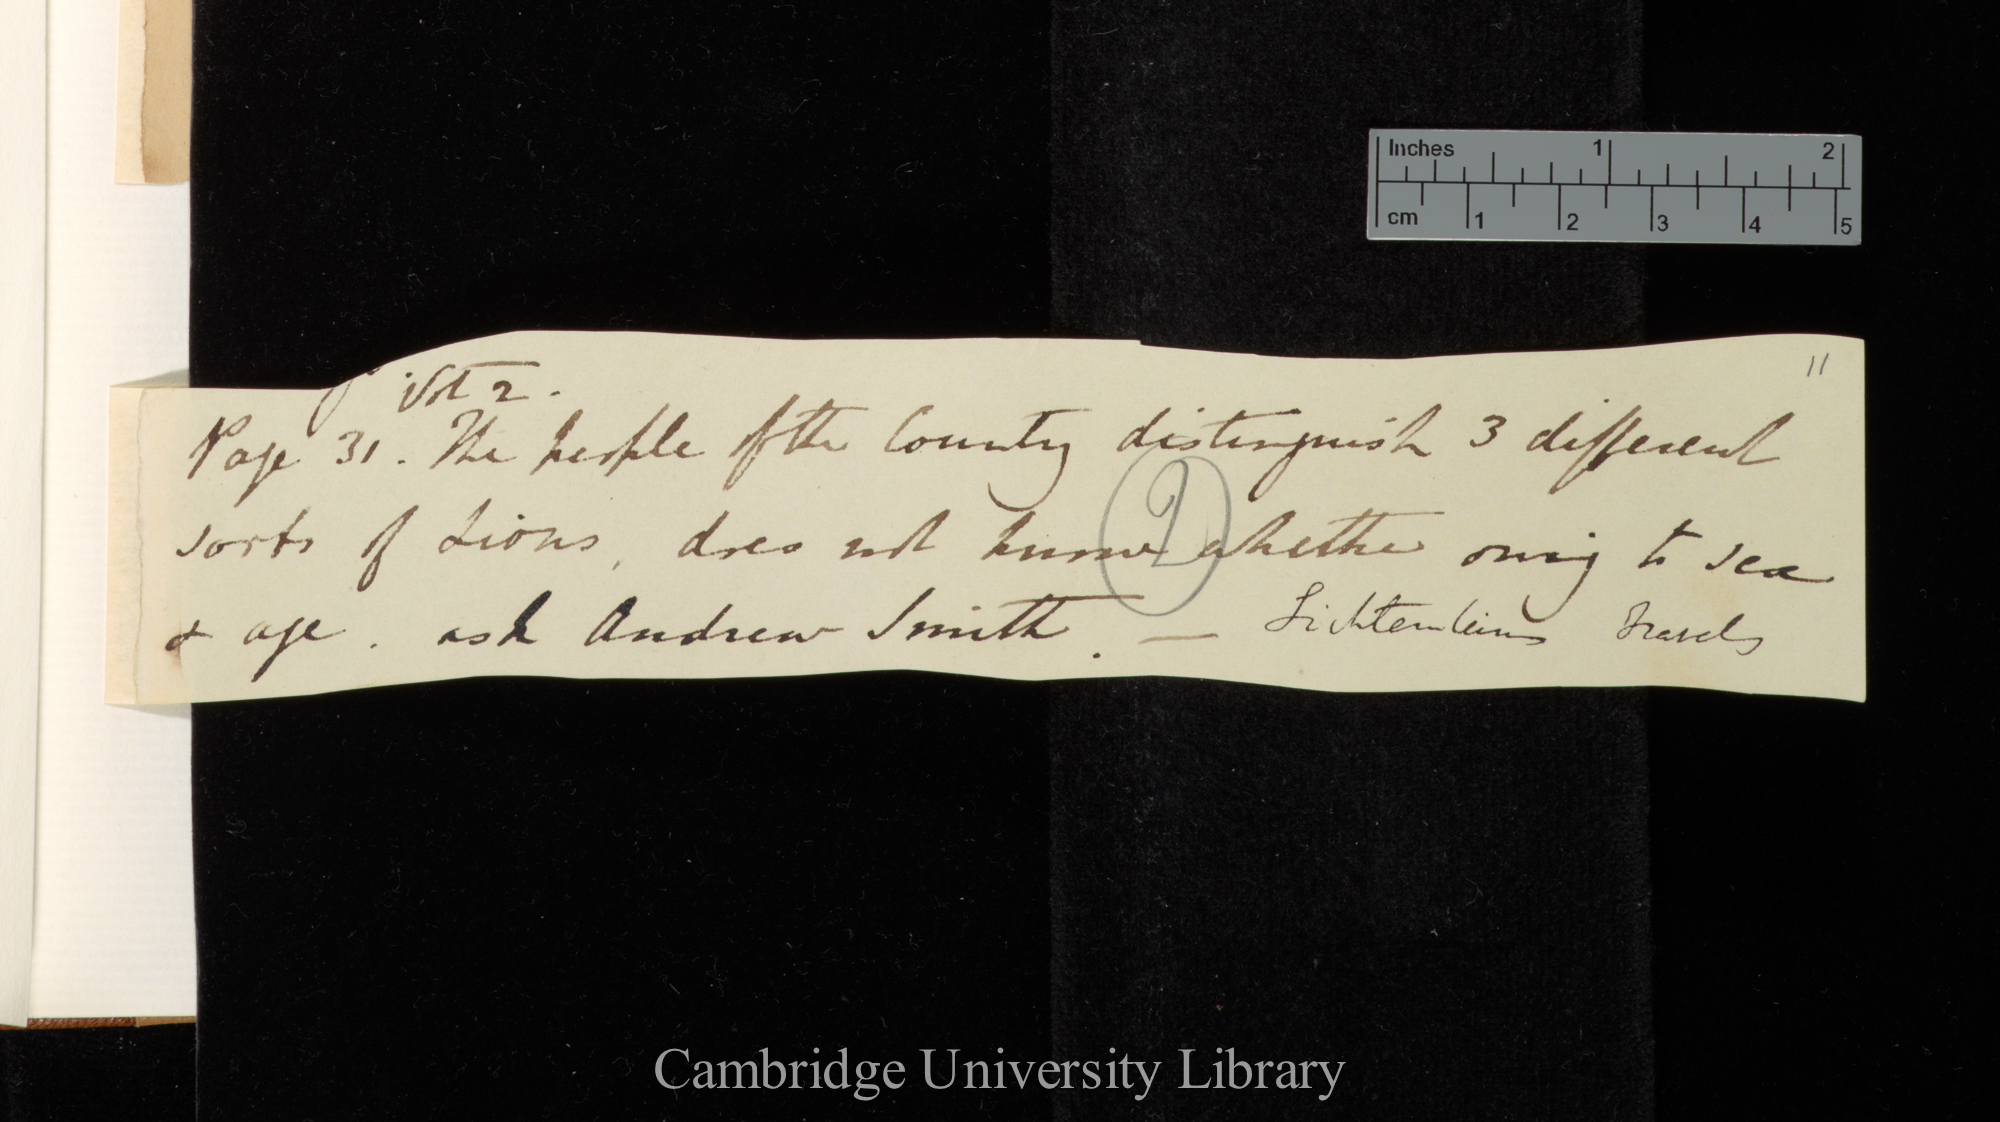 Inches 1 2
cm 1 2 3 4 5
11
Vol 2.
Page 31. The people of the Country distinguish 3 different
sorts of Lions, does not know whether owing to sex
2
& age. ask Andrew Smith. — Lichtensteins Travels
Cambridge University Library